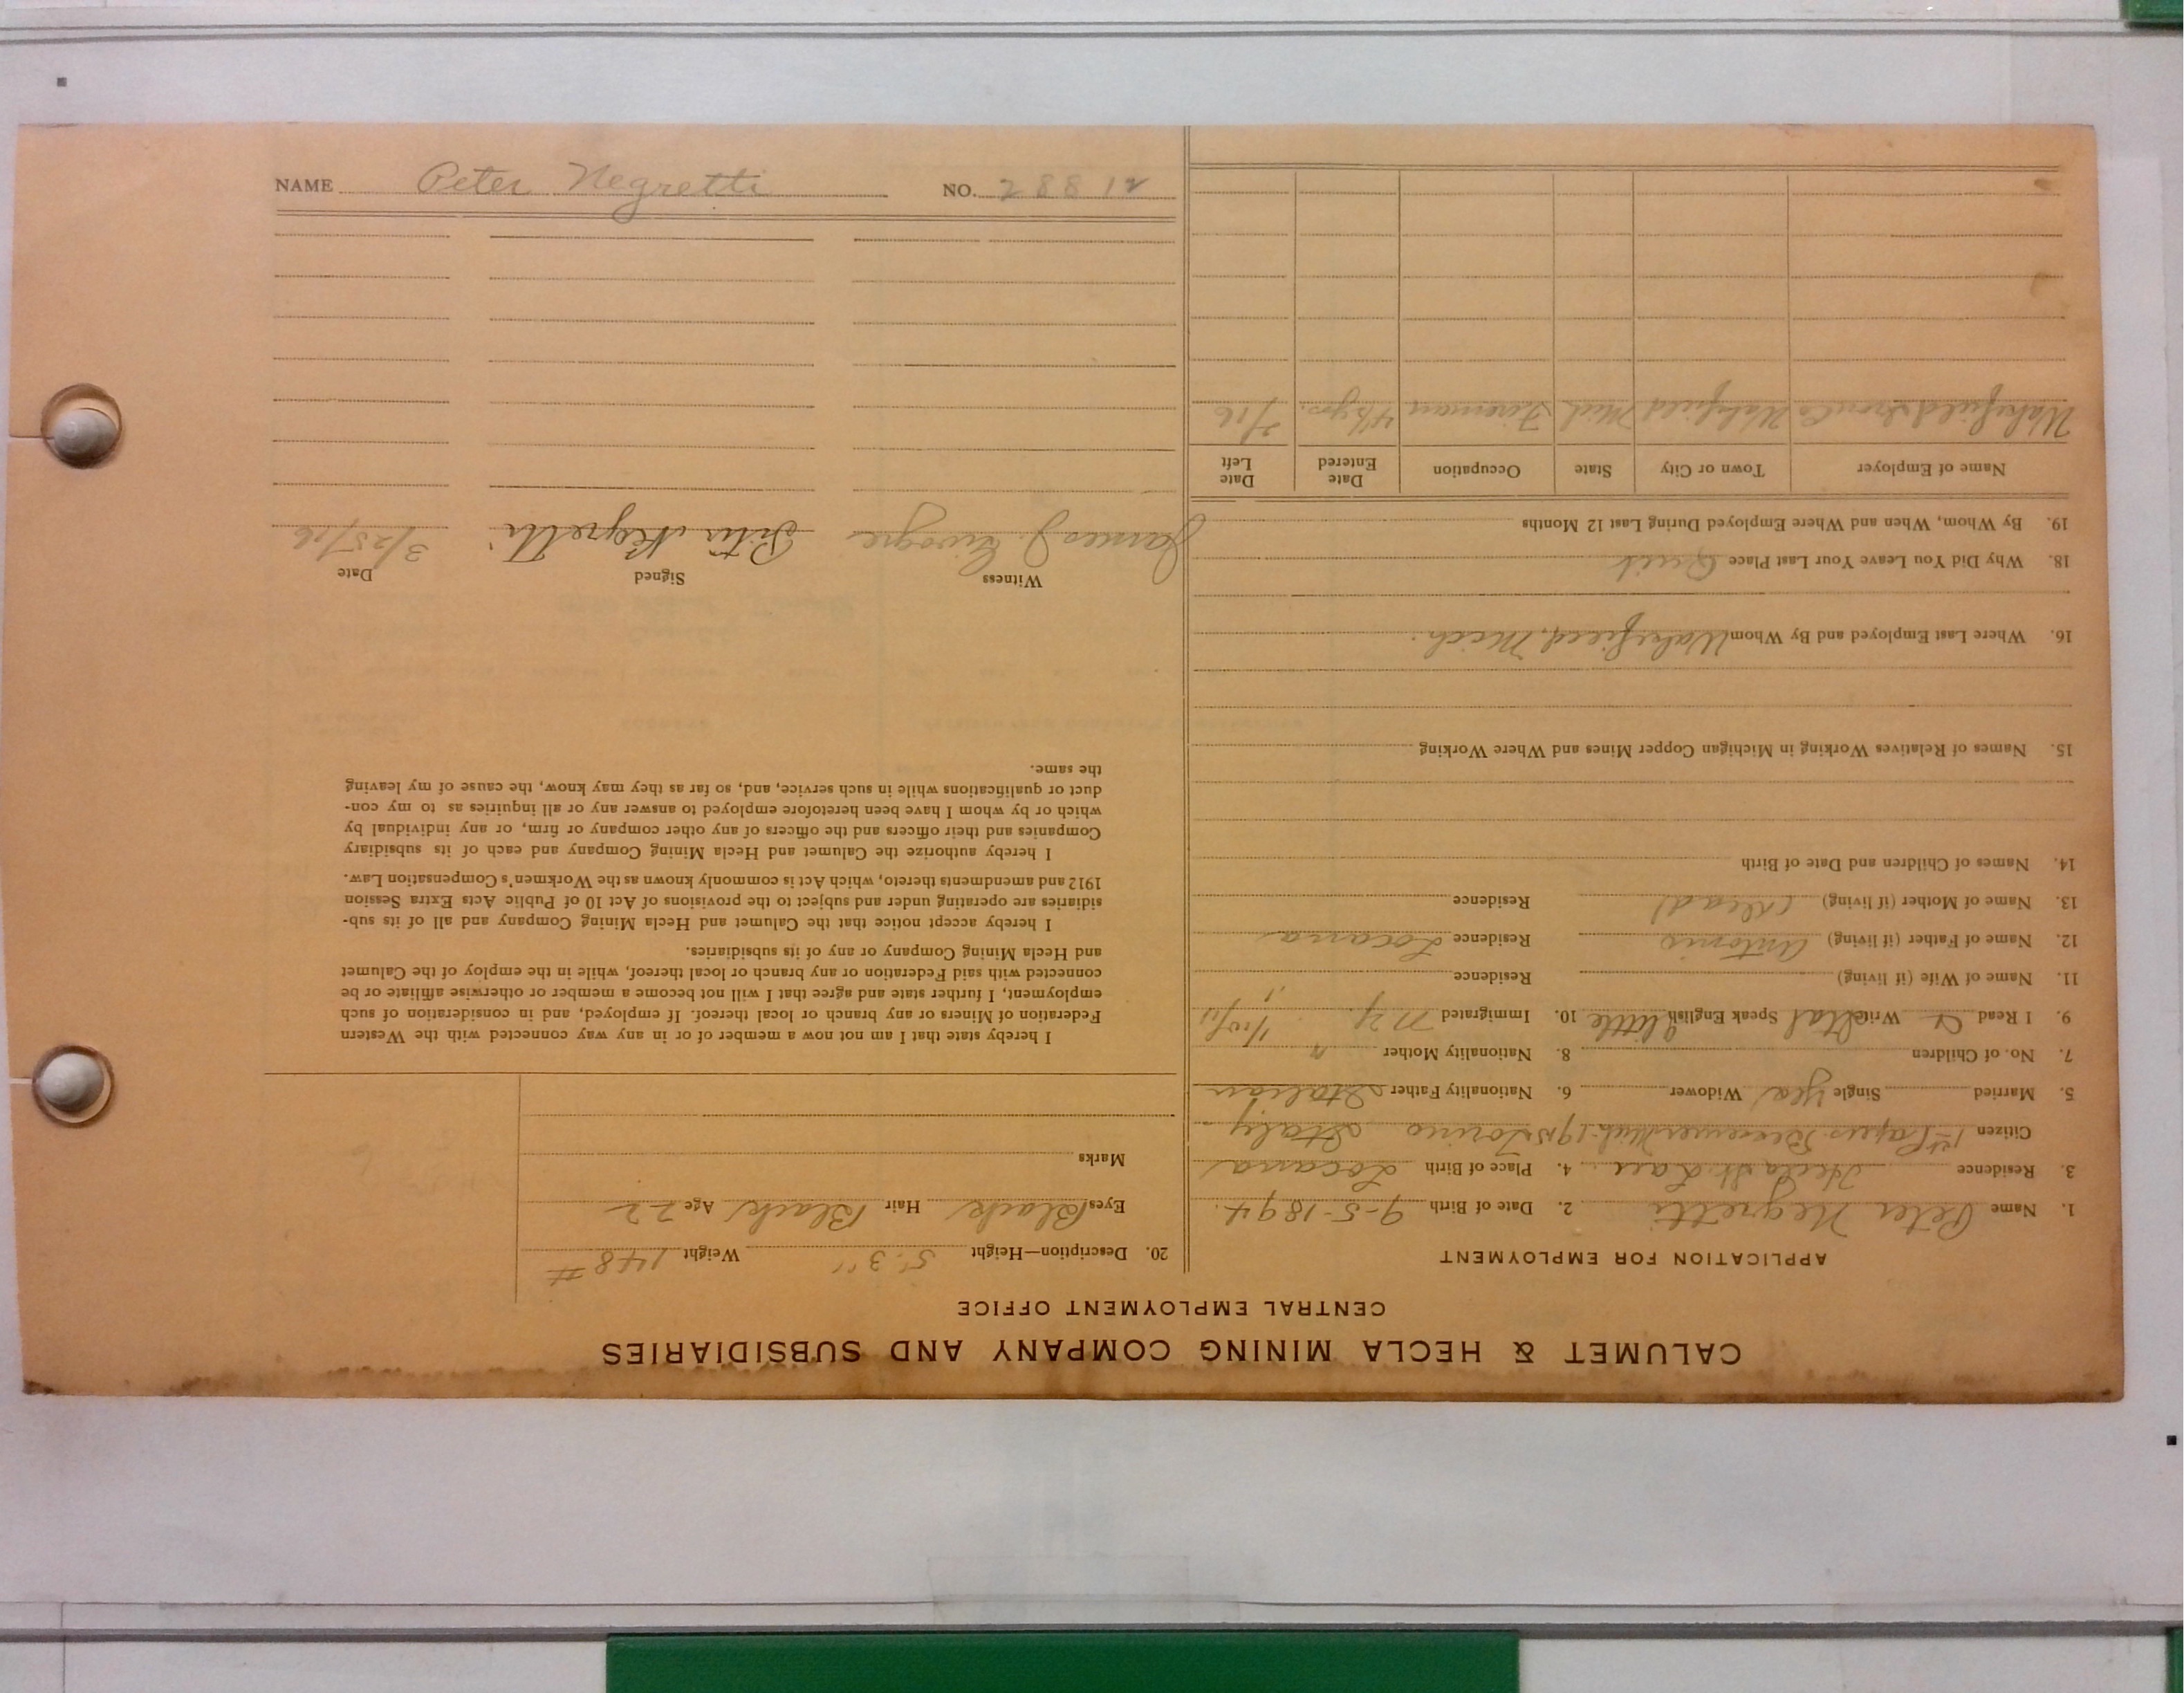 CALUMET & HECLA MINING COMPANY AND SUBSIDIARIES
CENTRAL EMPLOYMENT OFFICE
APPLICATION FOR EMPLOYMENT
1. Name Peter Negretti 2. Date of Birth 9-5-1894.
3. Residence Hecla St. Laur. 4. Place of Birth Locana
Citizen 1st Papers Mich. 1915 Torino Italy
5. Married Single Yes Widower 6. Nationality Father Italian
7. No. of Children 8. Nationality Mother "
9. I Read & Write Ital Speak English A little 10. Immigrated N.Y.
11. Name of Wife (if living) Residence
12. Name of Father (if living) Antonio Residence Locana
13. Name of Mother (if living) (Dead) Residence
14. Names of Children and Date of Birth
15. Names of Relatives Working in Michigan Copper Mines and Where Working
16. Where Last Employed and By Whom Wakefield, Mich.
18. Why Did You Leave Your Last Place Quit
19. By Whom, When and Where Employed During Last 12 Months
Name of Employer Town or City State Occupation Date Entered Date Left
Wakefield Iron Co Wakefield Mich Fireman yrs. 2/16
20. Description—Height 5' 3" Weight 148 #
Eyes Black Hair Black Age 22
Marks
I hereby state that I am not now a member of or in any way connected with the Western
Federation of Miners or any branch or local thereof. If employed, and in consideration of such
employment, I further state and agree that I will not become a member or otherwise affiliate or be
connected with said Federation or any branch or local thereof, while in the employ of the Calumet
and Hecla Mining Company or any of its subsidiaries.
I hereby accept notice that the Calumet and Hecla Mining Company and all of its sub-
sidiaries are operating under and subject to the provisions of Act 10 of Public Acts Extra Session
1912 and amendments thereto, which Act is commonly known as the Workmen's Compensation Law.
I hereby authorize the Calumet and Hecla Mining Company and each of its subsidiary
Companies and their officers and the officers of any other company or firm, or any individual by
which or by whom I have been heretofore employed to answer any or all inquiries as to my con-
duct or qualifications while in such service, and, so far as they may know, the cause of my leaving
the same.
Witness Signed Date
James J. Piter Negretti 3/25/16
NAME Peter Negretti NO. 28812